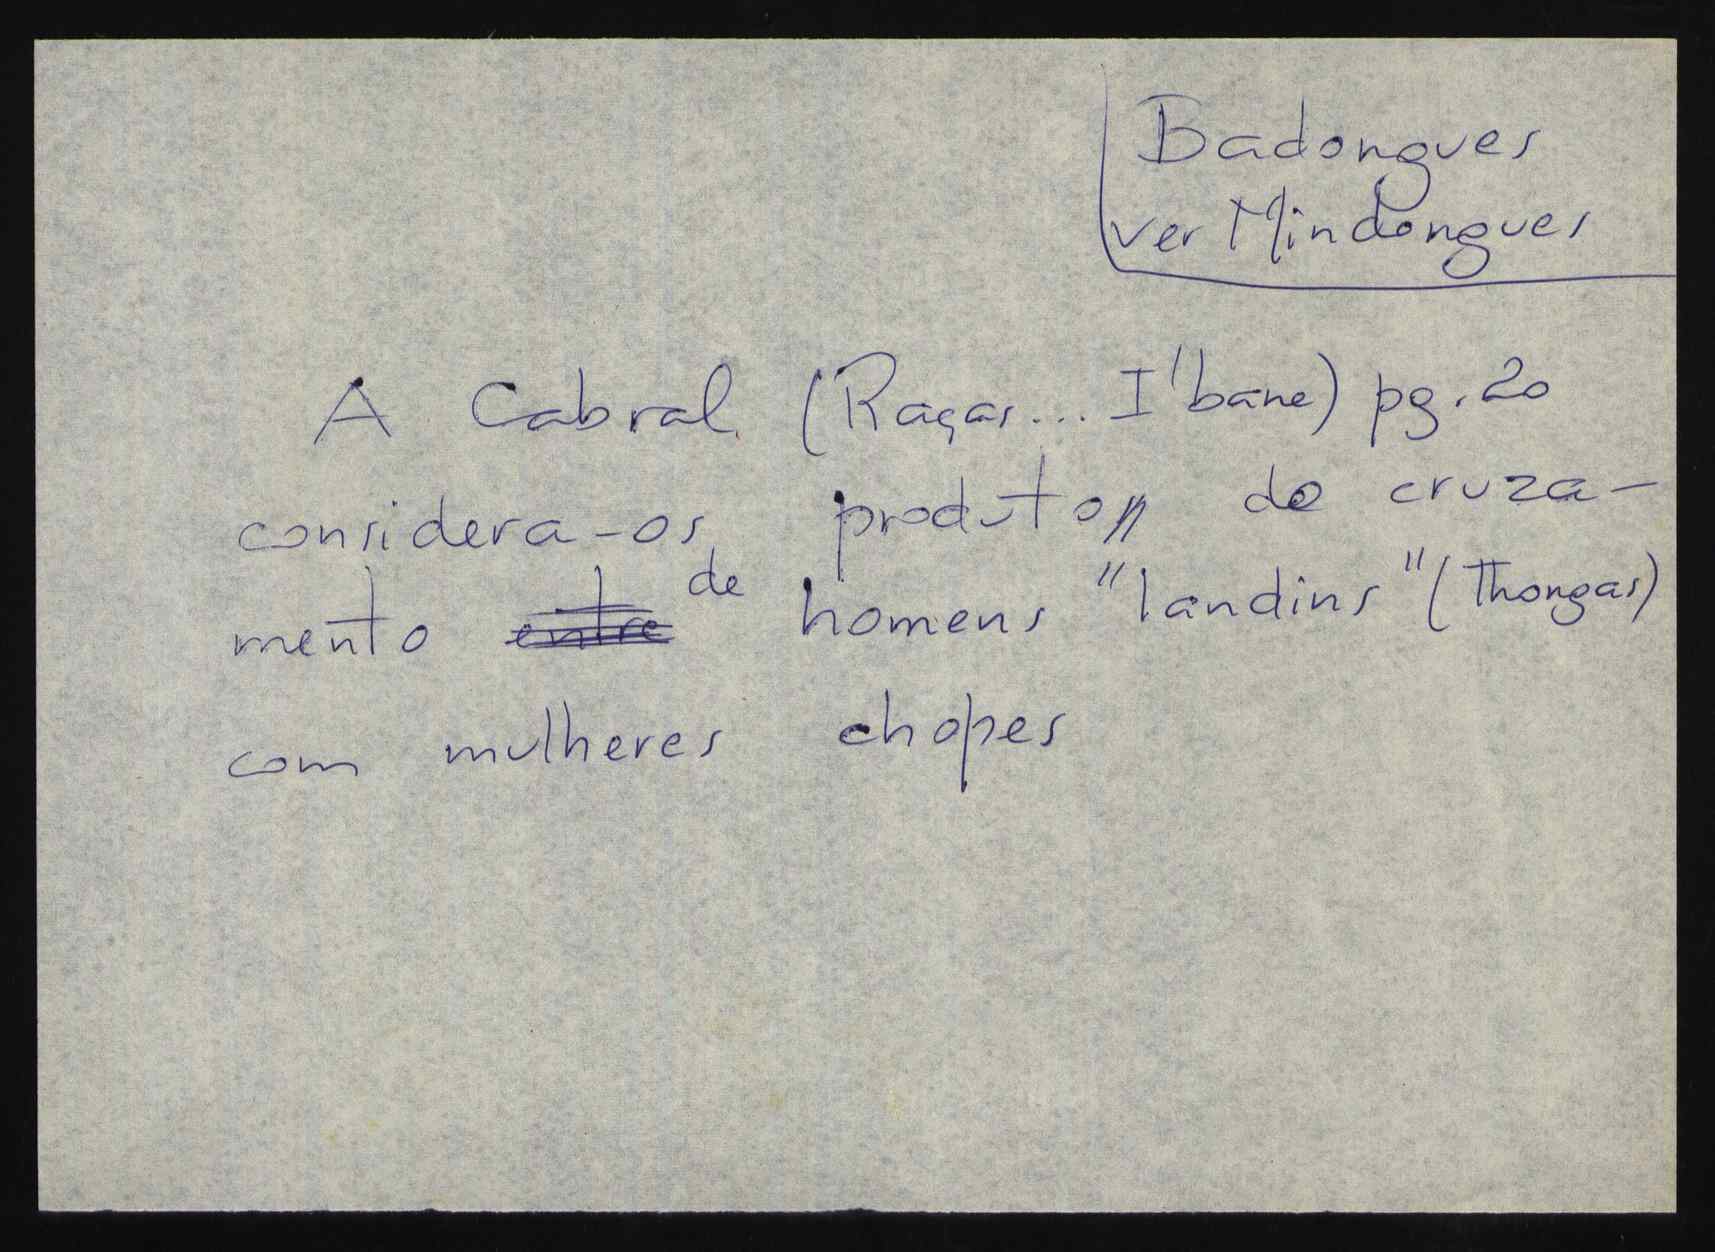 Badongues
ver Mindongues
A Cabral (Raças... I'bane) pg. 20
considera-os produto de cruza-
mento entre de homens "landins" (Thongas)
com mulheres chopes